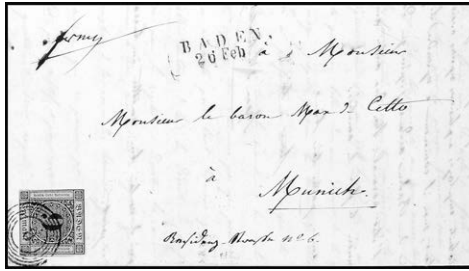 franco
BADEN.
26 Feb
à Monsieur
Monsieur le baron Max de Cetto
à
Munich.
Residenz-Strasse № 6.
6